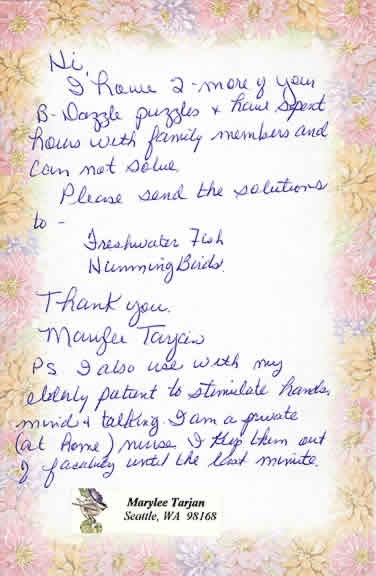 Hi,
I have 2 - more of your
B-Dazzle puzzles & have spent
hours with family members and
can not solve.
Please send the solutions
to -
Freshwater Fish
Humming Birds.
Thank you.
Marylee Tarjan
PS I also use with my
elderly patient to stimulate hands,
mind & talking. I am a private
(at home) nurse. I keep them out
of facility until the last minute.
Marylee Tarjan
Seattle, WA 98168